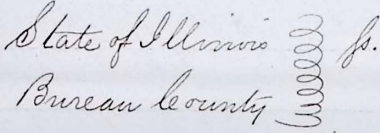 State of Illinois } ss.
Bureau County